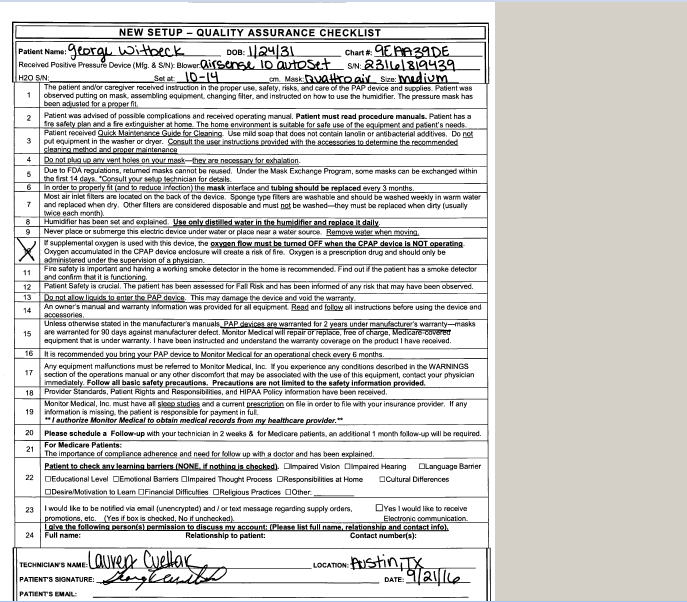 NEW SETUP – QUALITY ASSURANCE CHECKLIST
Patient Name: George Witbeck DOB: 1/24/31 Chart#: 9EAA39DE
Received Positive Pressure Device (Mfg. & S/N): Blower: airsense 10 autoset S/N: 23161819439
H2O S/N: Set at: 10-14 cm. Mask: Quattro air Size: medium
1 The patient and/or caregiver received instruction in the proper use, safety, risks, and care of the PAP device and supplies. Patient was
observed putting on mask, assembling equipment, changing filter, and instructed on how to use the humidifier. The pressure mask has
been adjusted for a proper fit.
2 Patient was advised of possible complications and received operating manual. Patient must read procedure manuals. Patient has a
fire safety plan and a fire extinguisher at home. The home environment is suitable for safe use of the equipment and patient's needs.
3 Patient received Quick Maintenance Guide for Cleaning. Use mild soap that does not contain lanolin or antibacterial additives. Do not
put equipment in the washer or dryer. Consult the user instructions provided with the accessories to determine the recommended
cleaning method and proper maintenance
4 Do not plug up any vent holes on your mask—they are necessary for exhalation.
5 Due to FDA regulations, returned masks cannot be reused. Under the Mask Exchange Program, some masks can be exchanged within
the first 14 days. *Consult your setup technician for details.
6 In order to properly fit (and to reduce infection) the mask interface and tubing should be replaced every 3 months.
7 Most air inlet filters are located on the back of the device. Sponge type filters are washable and should be washed weekly in warm water
and replaced when dry. Other filters are considered disposable and must not be washed—they must be replaced when dirty (usually
twice each month).
8 Humidifier has been set and explained. Use only distilled water in the humidifier and replace it daily.
9 Never place or submerge this electric device under water or place near a water source. Remove water when moving.
If supplemental oxygen is used with this device, the oxygen flow must be turned OFF when the CPAP device is NOT operating.
Oxygen accumulated in the CPAP device enclosure will create a risk of fire. Oxygen is a prescription drug and should only be
administered under the supervision of a physician.
11 Fire safety is important and having a working smoke detector in the home is recommended. Find out if the patient has a smoke detector
and confirm that it is functioning.
12 Patient Safety is crucial. The patient has been assessed for Fall Risk and has been informed of any risk that may have been observed.
13 Do not allow liquids to enter the PAP device. This may damage the device and void the warranty.
14 An owner's manual and warranty information was provided for all equipment. Read and follow all instructions before using the device and
accessories.
15 Unless otherwise stated in the manufacturer's manuals, PAP devices are warranted for 2 years under manufacturer's warranty—masks
are warranted for 90 days against manufacturer defect. Monitor Medical will repair or replace, free of charge, Medicare-covered
equipment that is under warranty. I have been instructed and understand the warranty coverage on the product I have received.
16 It is recommended you bring your PAP device to Monitor Medical for an operational check every 6 months.
17 Any equipment malfunctions must be referred to Monitor Medical, Inc. If you experience any conditions described in the WARNINGS
section of the operations manual or any other discomfort that may be associated with the use of this equipment, contact your physician
immediately. Follow all basic safety precautions. Precautions are not limited to the safety information provided.
18 Provider Standards, Patient Rights and Responsibilities, and HIPAA Policy information have been received.
19 Monitor Medical, Inc. must have all sleep studies and a current prescription on file in order to file with your insurance provider. If any
information is missing, the patient is responsible for payment in full.
** I authorize Monitor Medical to obtain medical records from my healthcare provider.**
20 Please schedule a Follow-up with your technician in 2 weeks & for Medicare patients, an additional 1 month follow-up will be required.
21 For Medicare Patients:
The importance of compliance adherence and need for follow up with a doctor and has been explained.
22 Patient to check any learning barriers (NONE, if nothing is checked). ☐Impaired Vision ☐Impaired Hearing ☐Language Barrier
☐Educational Level ☐Emotional Barriers ☐Impaired Thought Process ☐Responsibilities at Home ☐Cultural Differences
☐Desire/Motivation to Learn ☐Financial Difficulties ☐Religious Practices ☐Other:
23 I would like to be notified via email (unencrypted) and / or text message regarding supply orders, ☐Yes I would like to receive
promotions, etc. (Yes if box is checked, No if unchecked). Electronic communication.
24 I give the following person(s) permission to discuss my account: (Please list full name, relationship and contact info).
Full name: Relationship to patient: Contact number(s):
TECHNICIAN'S NAME: Lauren Cuellar LOCATION: Austin, TX
PATIENT'S SIGNATURE: DATE: 9/21/16
PATIENT'S EMAIL: